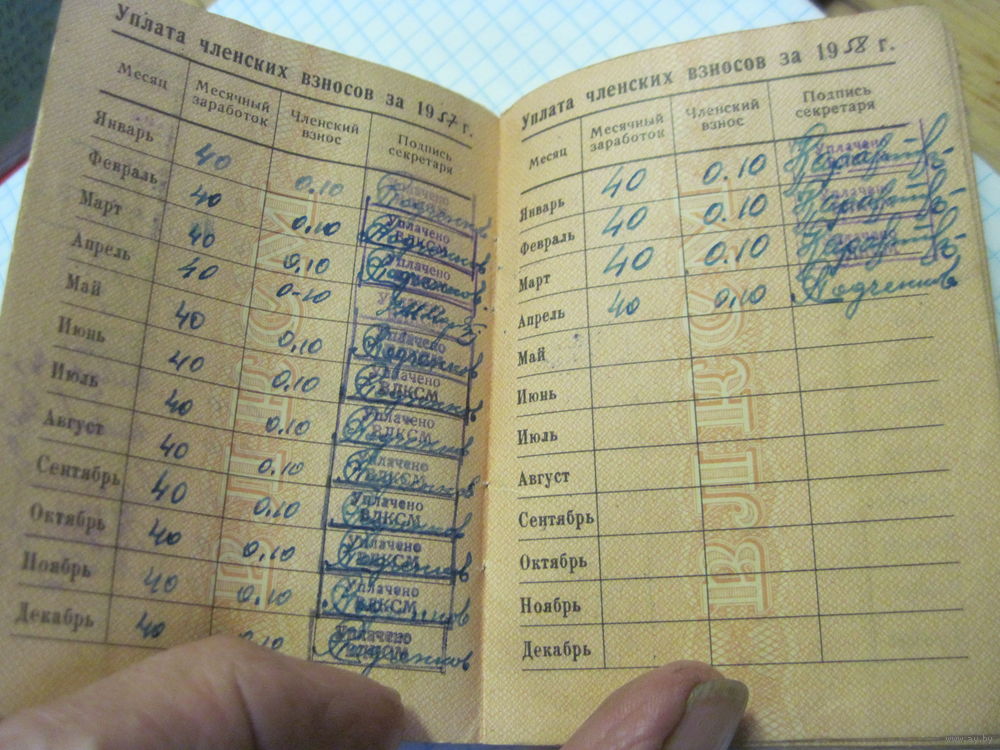 Уплата членских взносов за 1957 г.
Месяц Месячный заработок Членский взнос Подпись секретаря
Январь 40 0.10 Уплачено
Февраль 40 0.10 Уплачено ВЛКСМ
Март 40 0.10 Уплачено
Апрель 40 0-10
Май 40 0.10 Уплачено
Июнь 40 0.10 Уплачено ВЛКСМ
Июль 40 0.10 Уплачено ВЛКСМ
Август 40 0.10 Уплачено ВЛКСМ
Сентябрь 40 0.10 Уплачено ВЛКСМ
Октябрь 40 0.10 Уплачено ВЛКСМ
Ноябрь 40 0.10 Уплачено ВЛКСМ
Декабрь 40 0.10 Уплачено ВЛКСМ
ВЛКСМ
Уплата членских взносов за 1958 г.
Месяц Месячный заработок Членский взнос Подпись секретаря
Январь 40 0.10 Уплачено
Февраль 40 0.10 Уплачено
Март 40 0.10 Уплачено
Апрель 40 0.10
Май
Июнь
Июль
Август
Сентябрь
Октябрь
Ноябрь
Декабрь
ВЛКСМ
www.ay.by